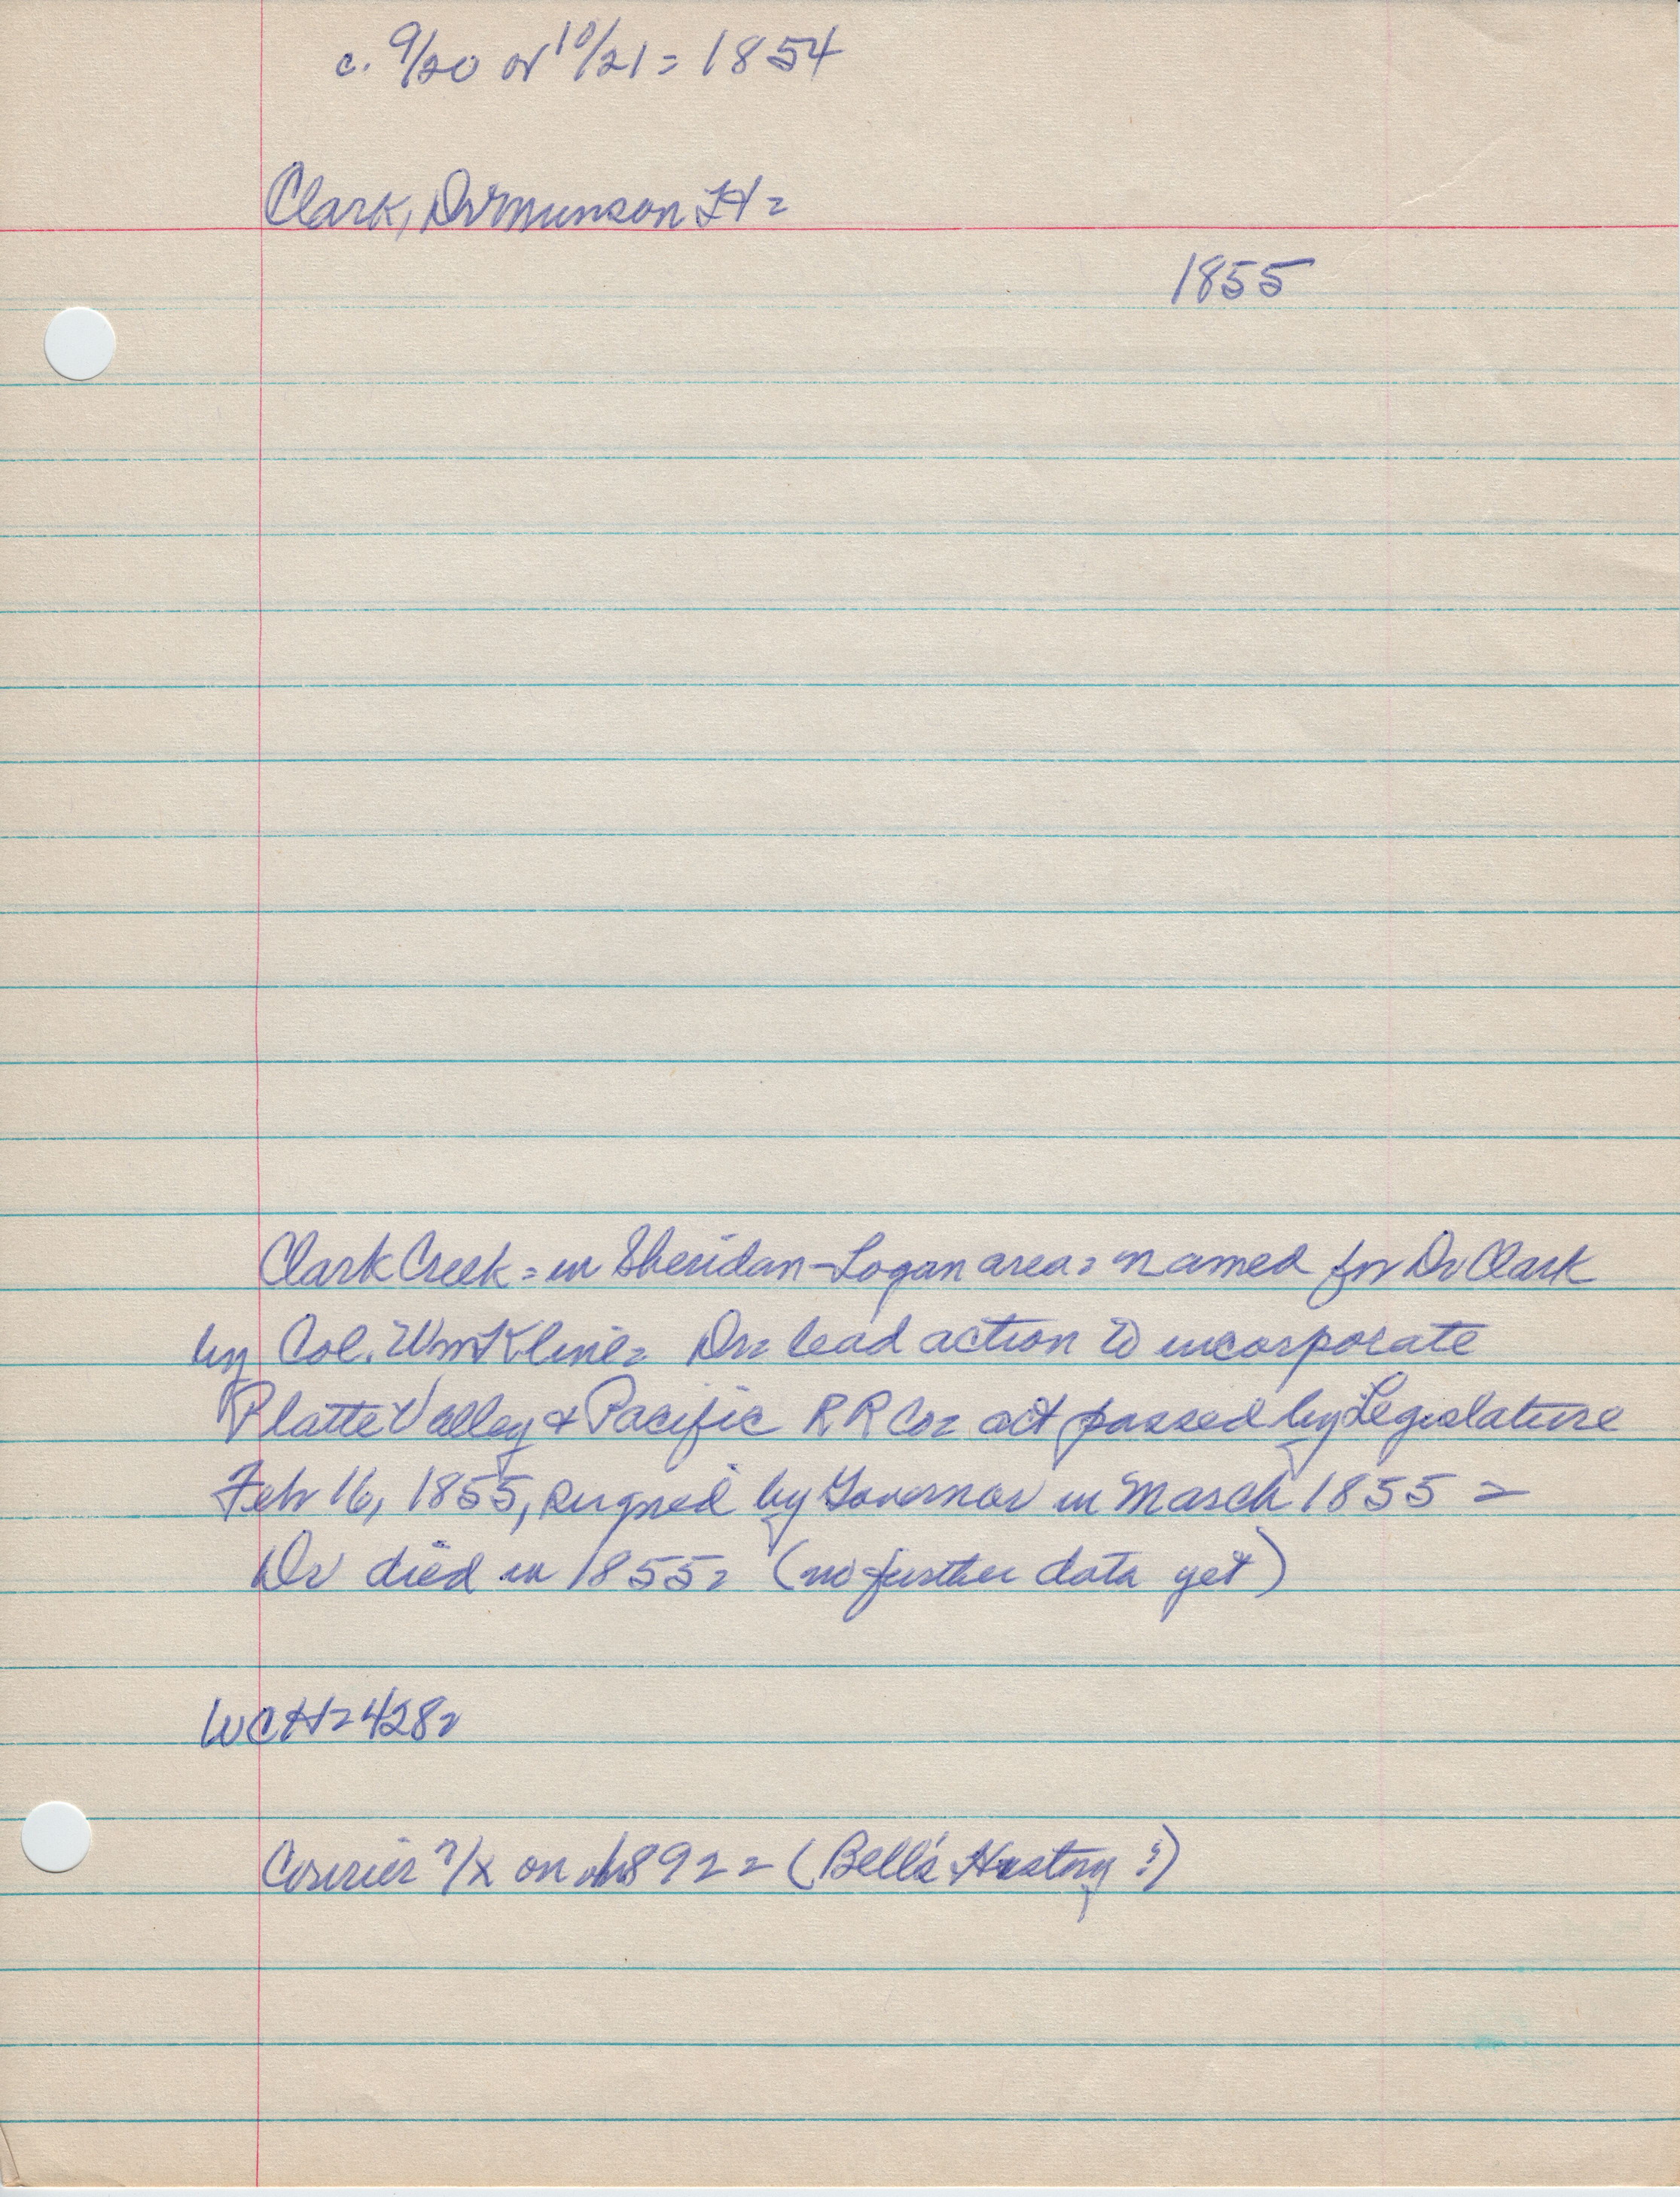 c. 9/20 or 10/21 = 1854
Clark, Dr Munson H =
1855
Clark Creek = in Sheridan-Logan area = named for Dr Clark
by Col. Wm Kline = Dr = lead action to incorporate
Platte Valley & Pacific R R Co = act passed by Legislature
Feb 16, 1855, signed by Governor in March 1855 =
Dr died in 1855 = (no further data yet)
WCH = 428 =
Courier ?/x on 1892 = (Bell's History?)